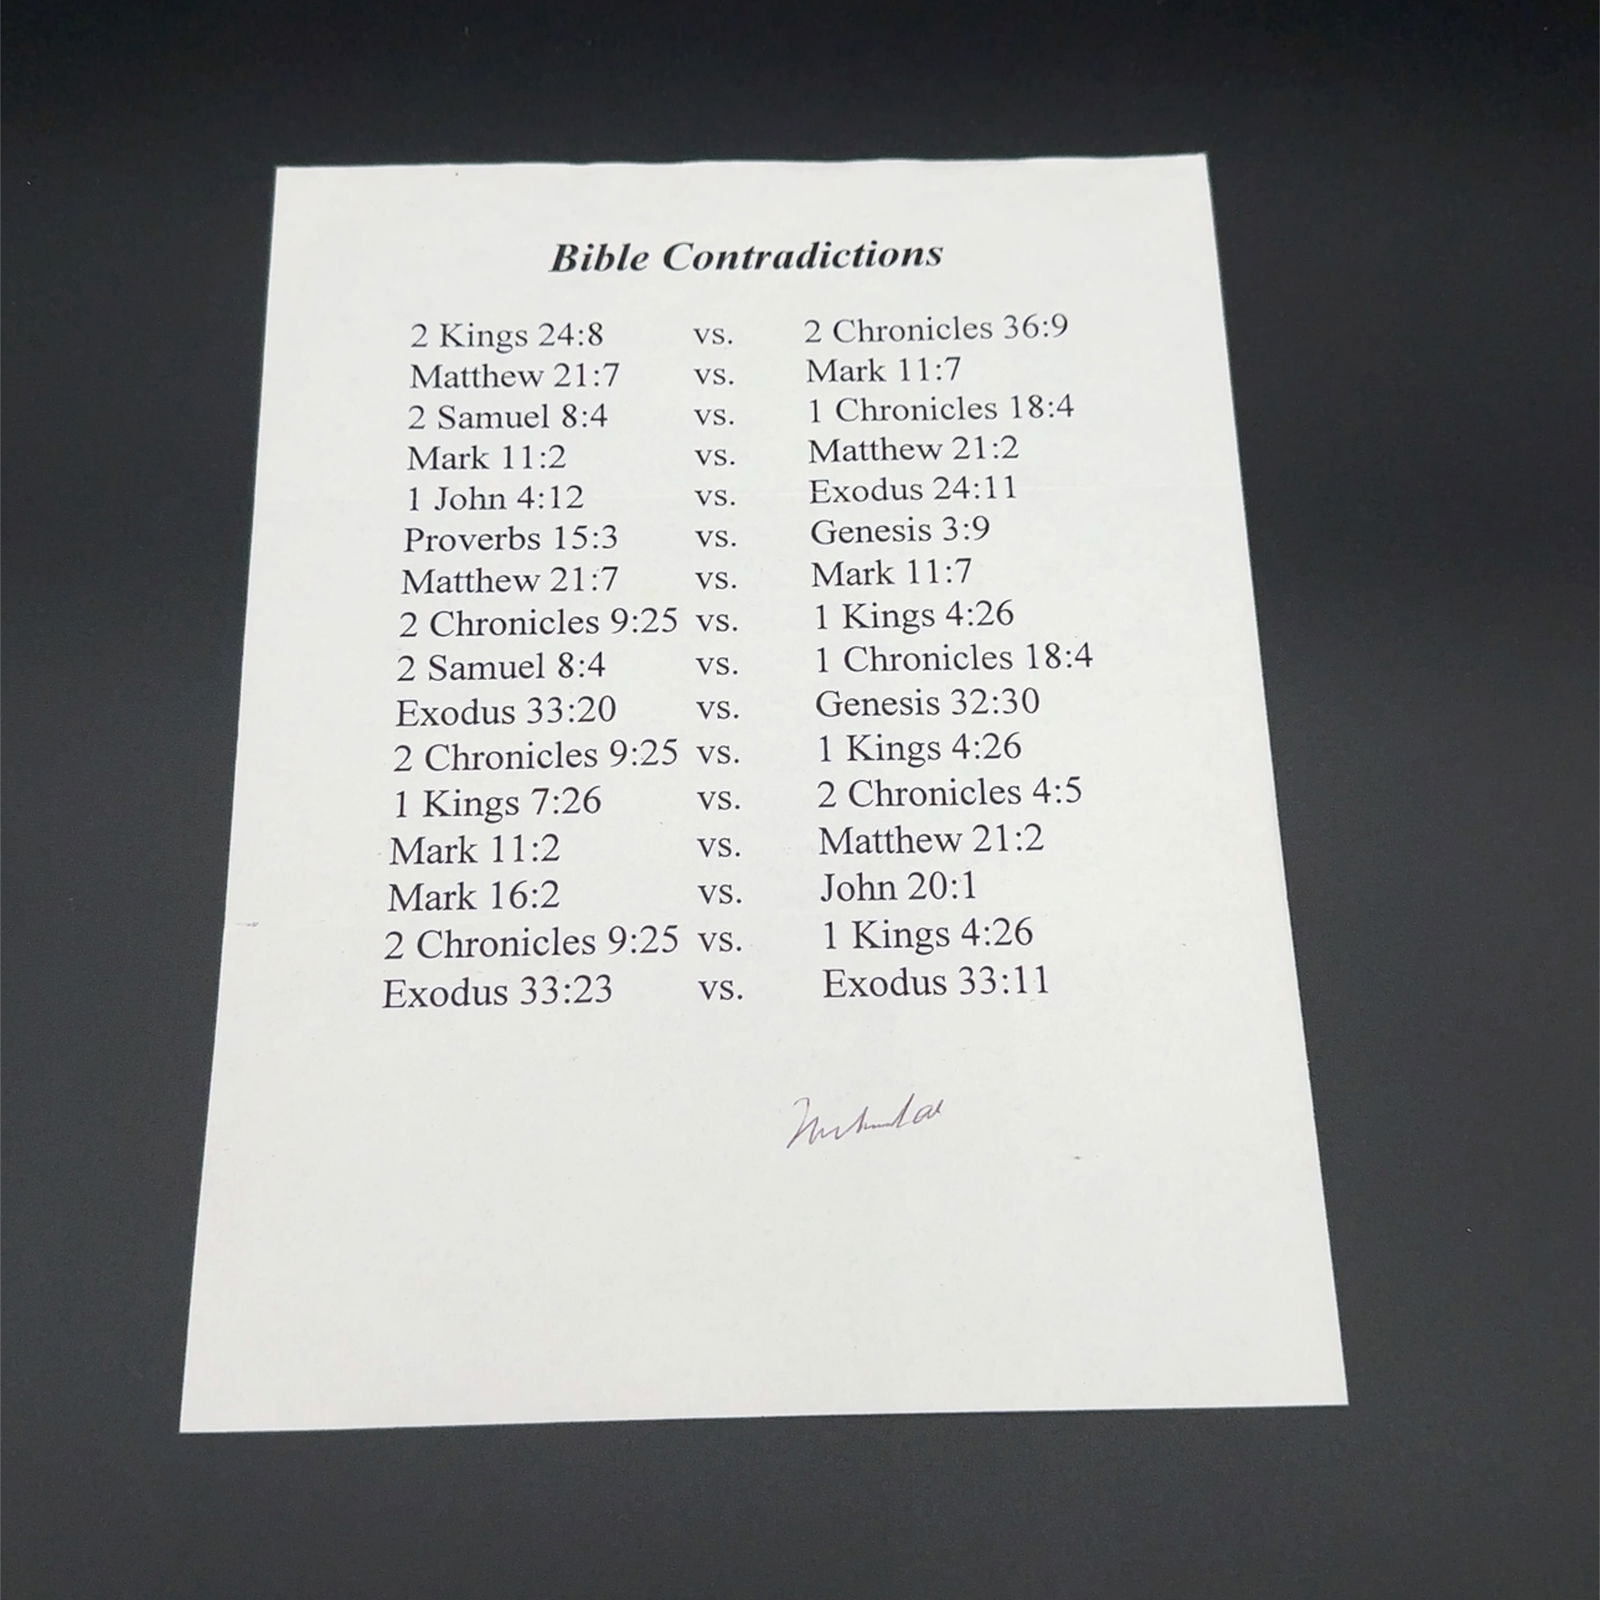 Bible Contradictions
2 Kings 24:8 vs. 2 Chronicles 36:9
Matthew 21:7 vs. Mark 11:7
2 Samuel 8:4 vs. 1 Chronicles 18:4
Mark 11:2 vs. Matthew 21:2
1 John 4:12 vs. Exodus 24:11
Proverbs 15:3 vs. Genesis 3:9
Matthew 21:7 vs. Mark 11:7
2 Chronicles 9:25 vs. 1 Kings 4:26
2 Samuel 8:4 vs. 1 Chronicles 18:4
Exodus 33:20 vs. Genesis 32:30
2 Chronicles 9:25 vs. 1 Kings 4:26
1 Kings 7:26 vs. 2 Chronicles 4:5
Mark 11:2 vs. Matthew 21:2
Mark 16:2 vs. John 20:1
2 Chronicles 9:25 vs. 1 Kings 4:26
Exodus 33:23 vs. Exodus 33:11